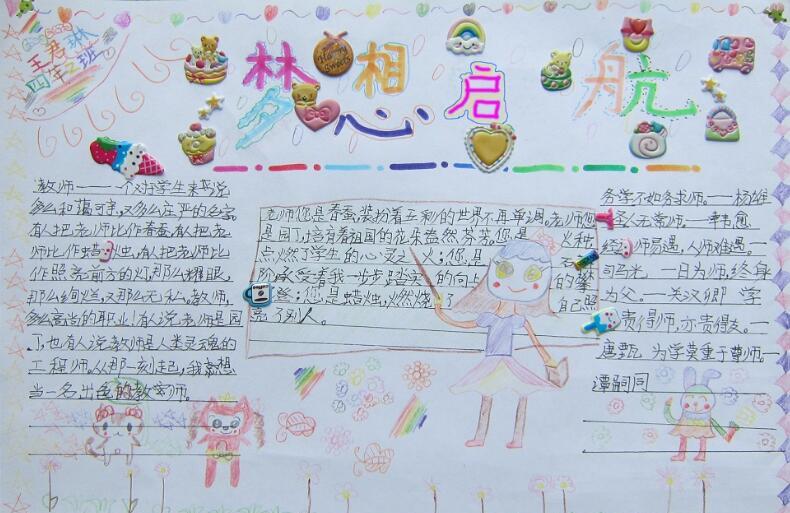 王君琳
四年一班
梦想启航
教师——一个对学生来说
多么和蔼可亲,又多么庄严的名字。
有人把老师比作春蚕,有人把老
师比作蜡烛,有人把老师比
作照亮前方的灯,那么耀眼,
那么绚烂,又那么无私。教师,
多么高尚的职业!有人说老师是园
丁,也有人说教师是人类灵魂的
工程师,从那一刻起,我就想
当一名出色的教师。
老师,您是春蚕,装扮着五彩的世界不再单调,老师,您
是园丁,培育着祖国的花朵益然芬芳;您是 火种
点燃了学生的心灵之火;您是 石
阶,承受着我一步步踏实的向上 的攀
登;您是蜡烛,燃烧了 自己照
亮了别人。
务学不如务求师。——杨雄
圣人无常师。——韩愈
经师易遇,人师难遇。——
司马光 一日为师,终身
为父。——关汉卿 学
贵得师,亦贵得友。——
唐甄 为学莫重于尊师。——
谭嗣同